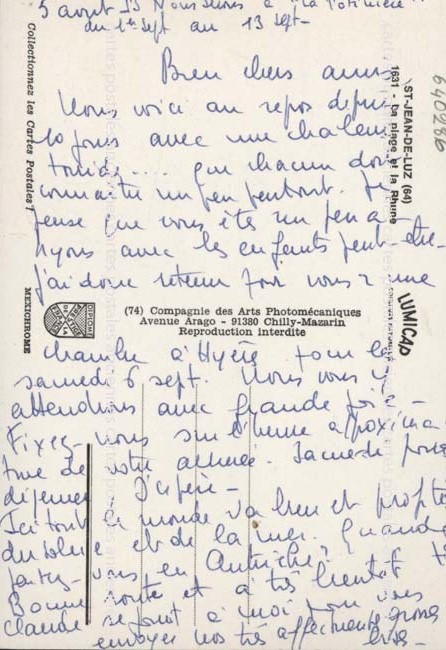 5 août 85 Nous serons à "La Potinière"
du 1er sept au 13 sept-
Bien chers amis
Nous voici au repos depuis
10 jours avec une chaleur
torride... que chacun doit
connaître un peu partout. Je
pense que vous êtes un peu à
Nyons avec les enfants peut-être-
j'ai donc retenu pour vous 2 une
chambre à Hyère pour le
samedi 6 sept. Nous vous y
attendrons avec grande joie-
Fixez-nous sur l'heure approxima
tive de votre arrivée. Samedi pour
déjeuner J'espère-
Ici tout le monde va bien et profite
du soleil et de la mer. Quand
partez-vous en Autriche?
Bonne route et à très bientôt
Claude se joint à moi pour vous
envoyer nos très affectueux gros
bises-
Collectionnez les Cartes Postales !
MEXICHROME
DIPLOME
PRESTIGE
DE LA
FRANCE
(74) Compagnie des Arts Photomécaniques
Avenue Arago - 91380 Chilly-Mazarin
Reproduction interdite
ST-JEAN-DE-LUZ (64)
1631 - La plage et la Rhune
LUMICAP
640286